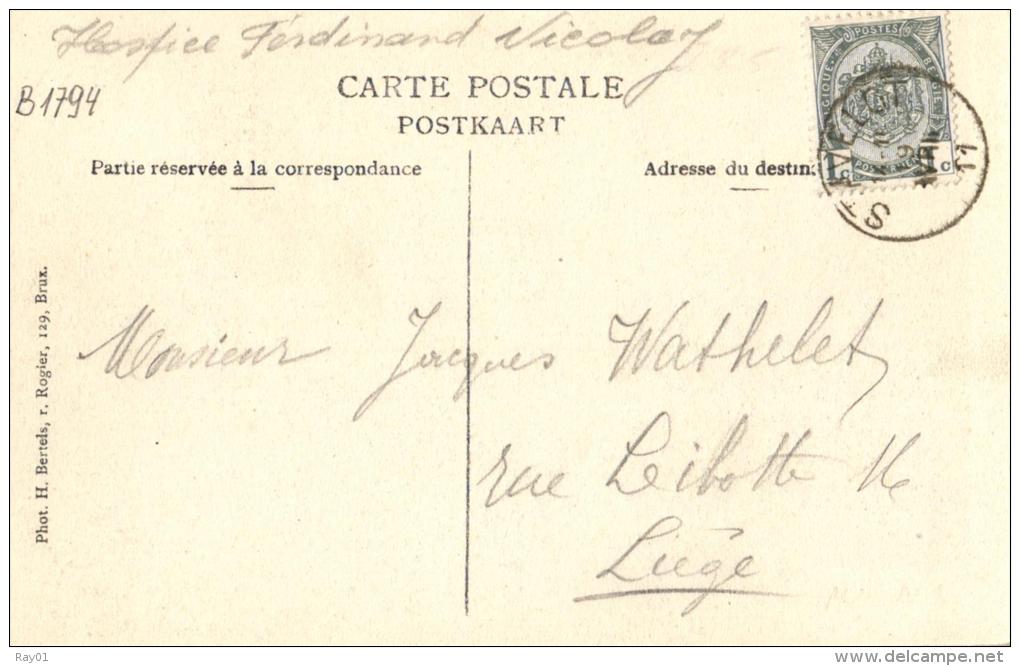 Hospice Ferdinand Nicolay
B1794
CARTE POSTALE
POSTKAART
Partie réservée à la correspondance
Adresse du destin
POSTES
1 C
C
STAVELOT
11
Phot. H. Bertels, r. Rogier, 129, Brux.
Monsieur Jacques Wathelet
rue Leibotte 16
Liège
Ray01
delcampe.net